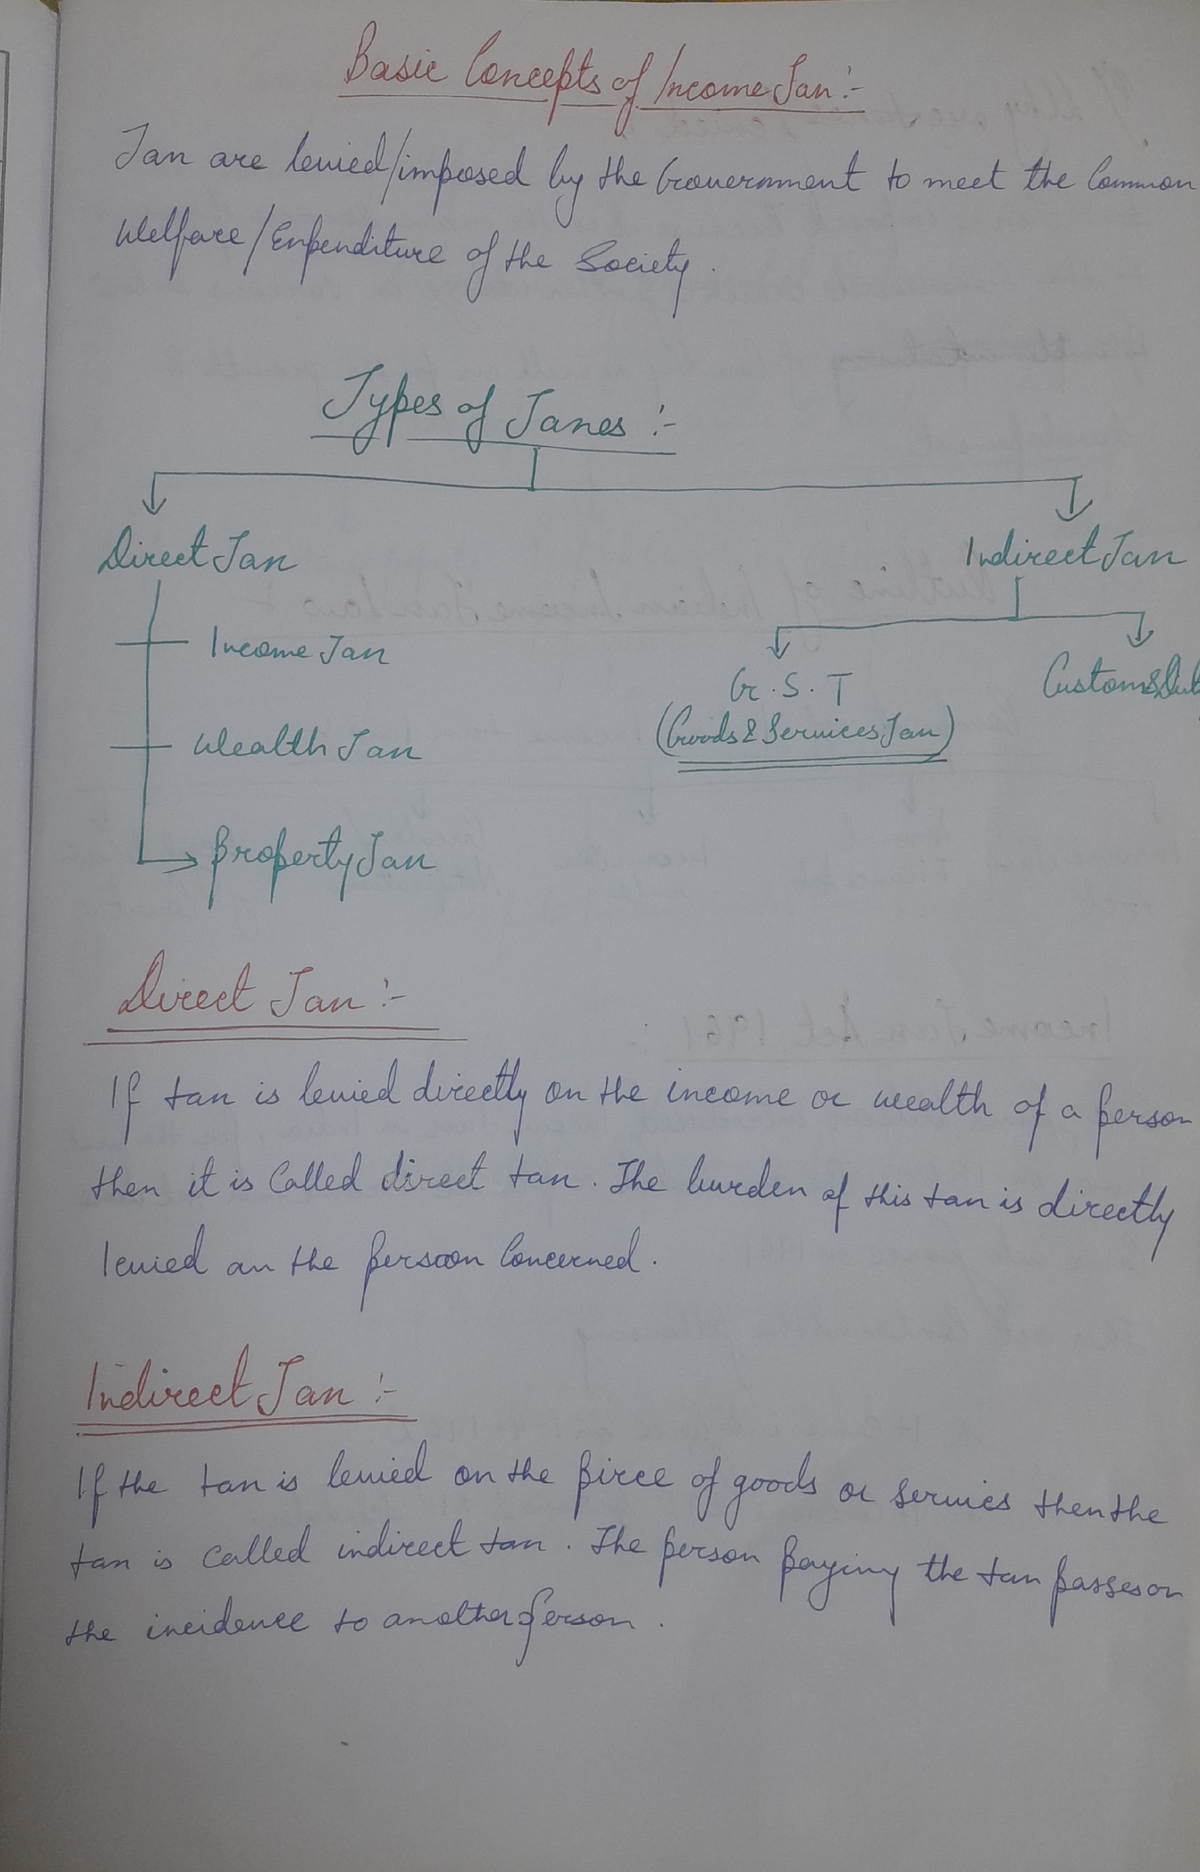 Basic Concepts of Income Tax :-
Tax are levied/imposed by the Government to meet the Common
Welfare/Expenditure of the Society.
Types of Taxes :-
Direct Tax
Indirect Tax
Income Tax
G.S.T
Customs
Wealth Tax
(Goods & Services Tax)
Property Tax
Direct Tax :-
If tax is levied directly on the income or wealth of a person
then it is Called direct tax. The burden of this tax is directly
levied on the person Concerned.
Indirect Tax :-
If the tax is levied on the pirce of goods or servics then the
tax is called indirect tax. The person paying the tax passes on
the incidence to another person.